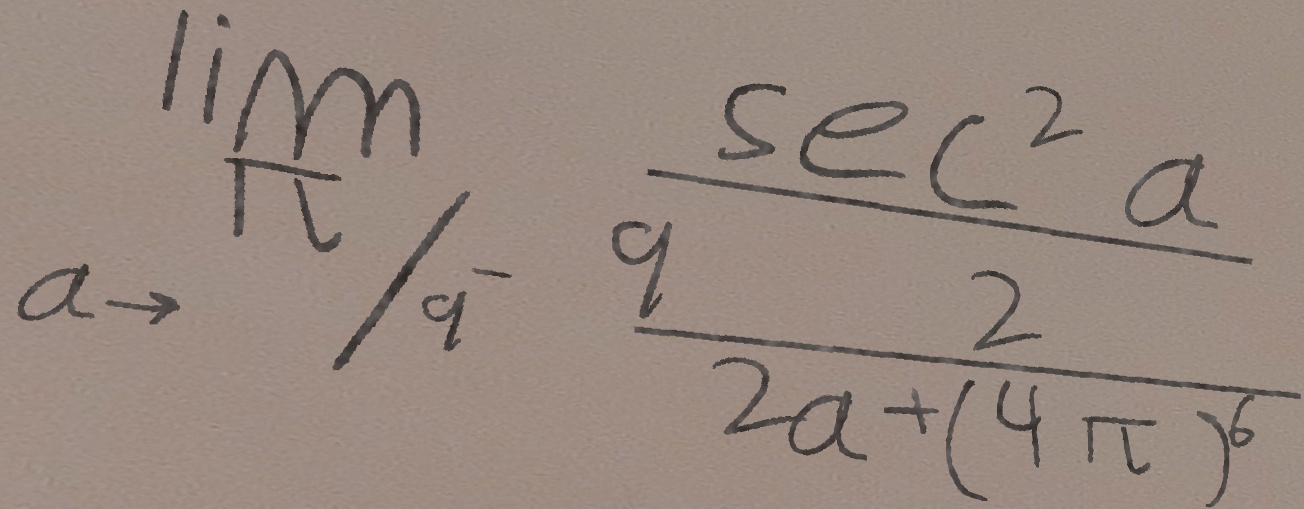 \lim_{a \to \pi/9^-} \frac{\sec^2 a}{\frac{9 \quad 2}{2a + (4\pi)^6}}